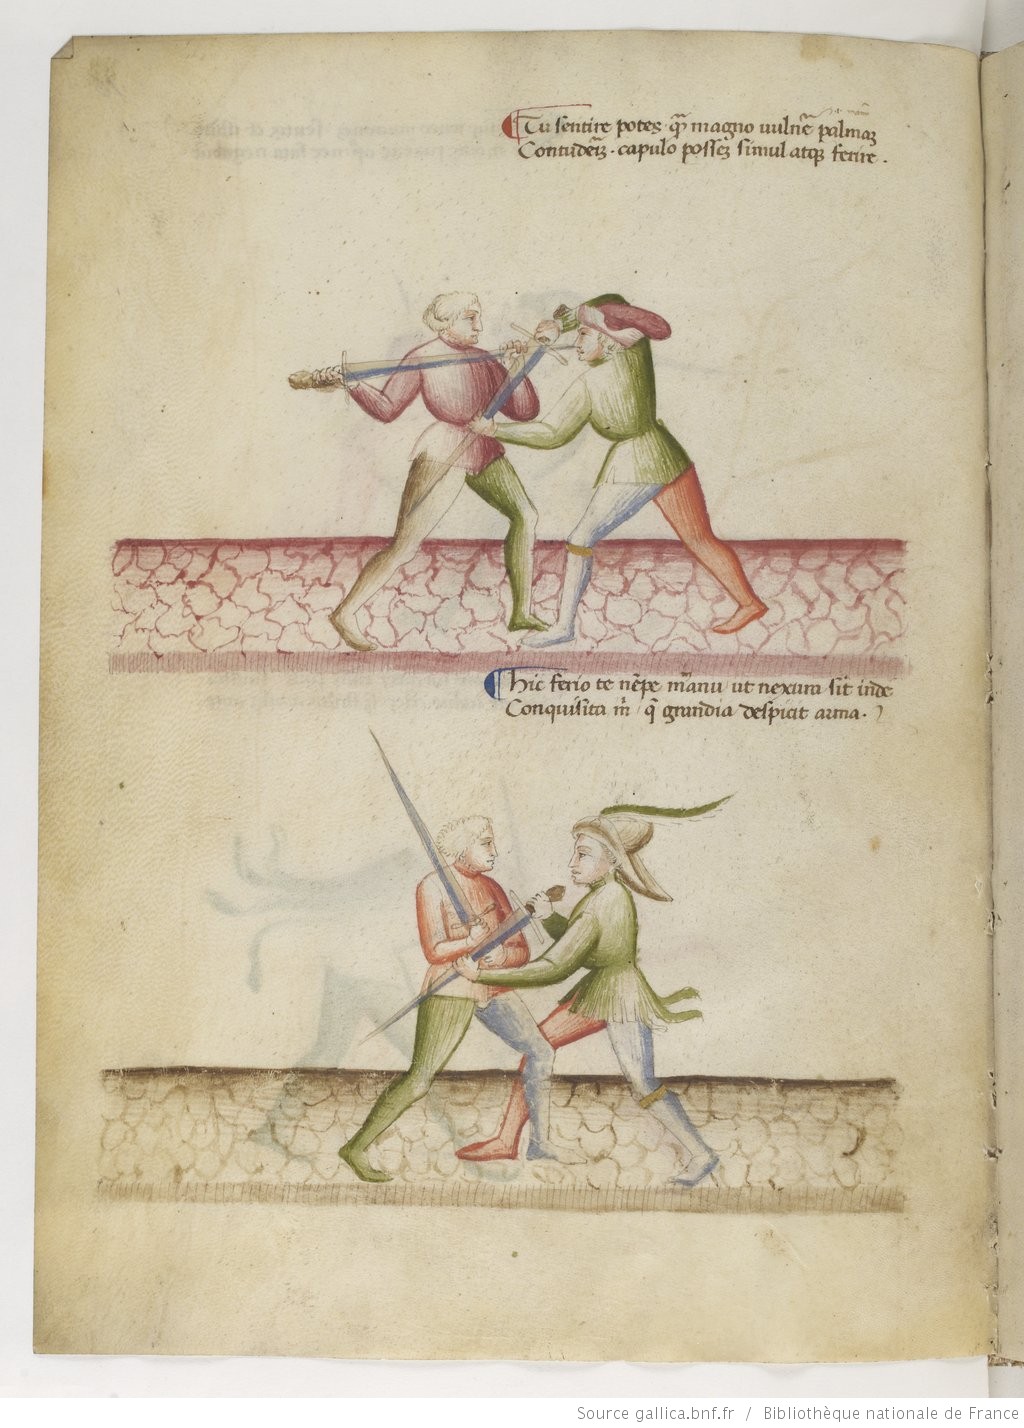 Tu sentire potes · q̄ magno uulnē palmaʒ
Contudeʒ · capulo posseʒ simul atqʒ ferire .
hic ferio te nēpe manu ut nexura sit inde
Conquisita m̄ · q̄ grandia despicit arma ·
Source gallica.bnf.fr / Bibliothèque nationale de France